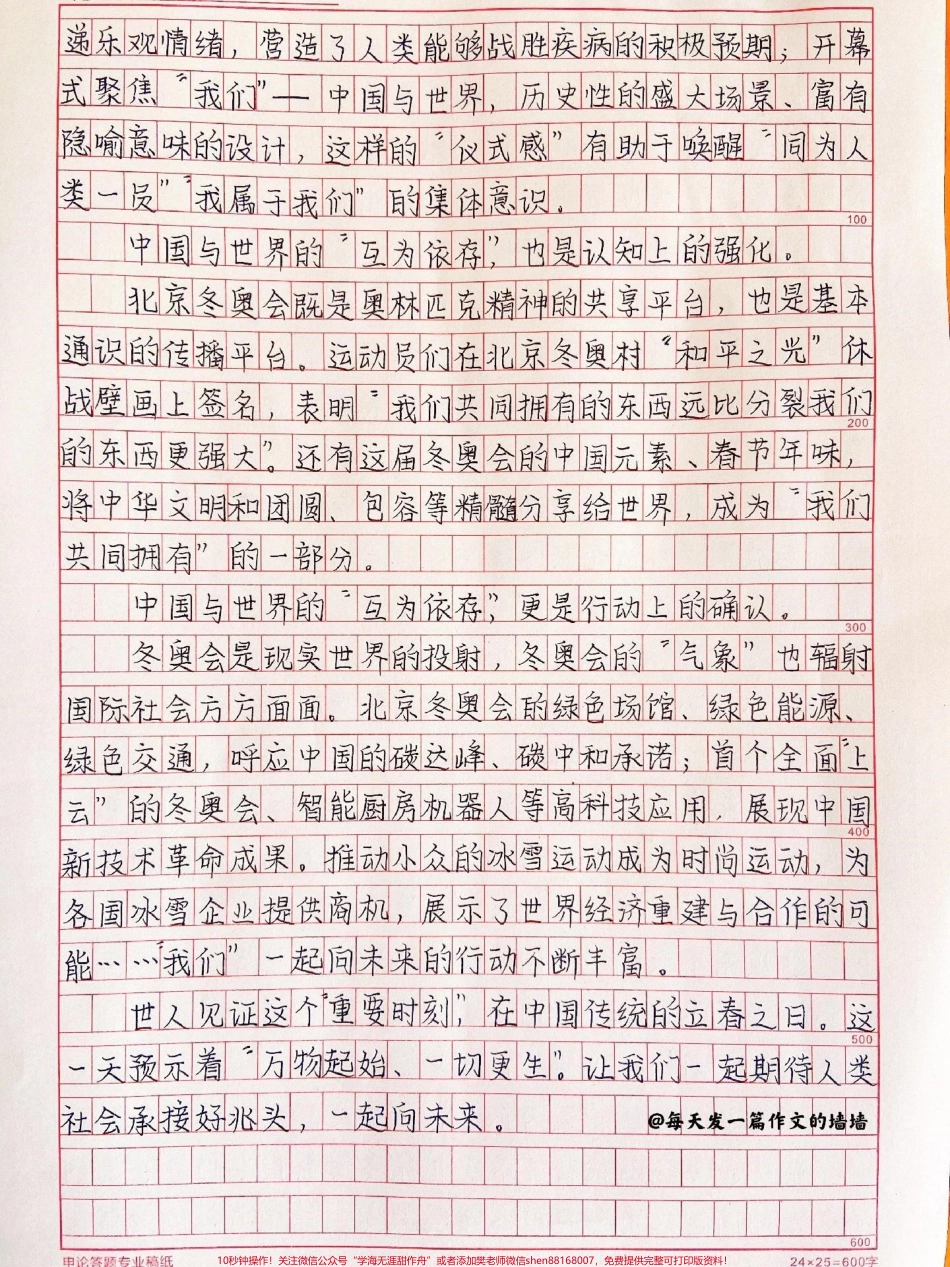 递乐观情绪，营造了人类能够战胜疾病的积极预期；开幕
式聚焦“我们”—中国与世界，历史性的盛大场景、富有
隐喻意味的设计，这样的“仪式感”有助于唤醒“同为人
类一员”“我属于我们”的集体意识。
100
中国与世界的“互为依存”，也是认知上的强化。
北京冬奥会既是奥林匹克精神的共享平台，也是基本
通识的传播平台。运动员们在北京冬奥村“和平之光”休
战壁画上签名，表明“我们共同拥有的东西远比分裂我们
200
的东西更强大”。还有这届冬奥会的中国元素、春节年味，
将中华文明和团圆、包容等精髓分享给世界，成为“我们
共同拥有”的一部分。
中国与世界的“互为依存”，更是行动上的确认。
300
冬奥会是现实世界的投射，冬奥会的“气象”也辐射
国际社会方方面面。北京冬奥会的绿色场馆、绿色能源、
绿色交通，呼应中国的碳达峰、碳中和承诺；首个全面“上
云”的冬奥会、智能厨房机器人等高科技应用，展现中国
400
新技术革命成果。推动小众的冰雪运动成为时尚运动，为
各国冰雪企业提供商机，展示了世界经济重建与合作的可
能……“我们”一起向未来的行动不断丰富。
世人见证这个“重要时刻”，在中国传统的立春之日。这
500
一天预示着“万物起始、一切更生”。让我们一起期待人类
社会承接好兆头，一起向未来。
@每天发一篇作文的墙墙
600
申论答题专业稿纸
10秒钟操作！关注微信公众号“学海无涯甜作舟”或者添加樊老师微信shen88168007，免费提供完整可打印版资料！
24×25=600字